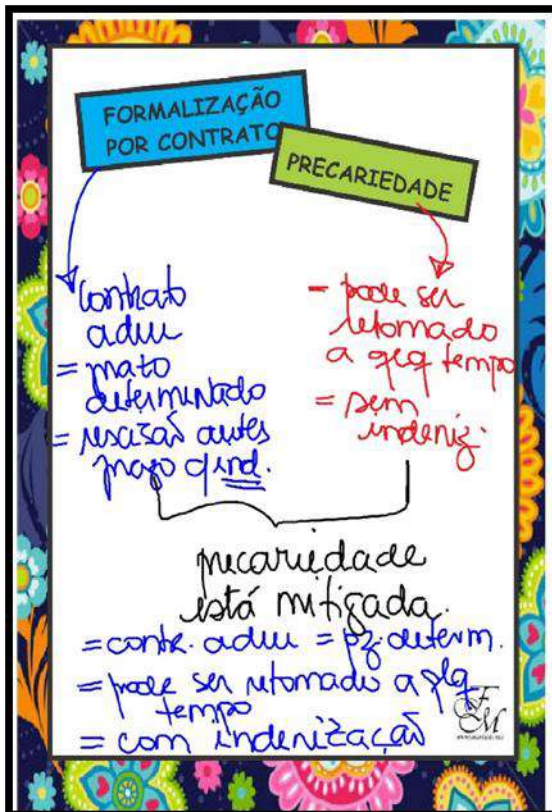 FORMALIZAÇÃO
POR CONTRATO
PRECARIEDADE
Contrato
adm
= prazo
determinado
= rescisão antes
prazo c/ ind.
- pode ser
retomado
a qlq tempo
= sem
indeniz.
precariedade
está mitigada.
= contr. adm = pz. determ.
= pode ser retomado a qlq
tempo
= com indenização
FM